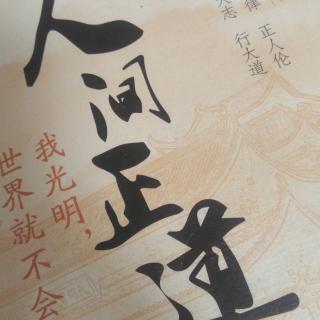 人间正道
我光明，
世界就不会
律 正人伦
大志 行大道